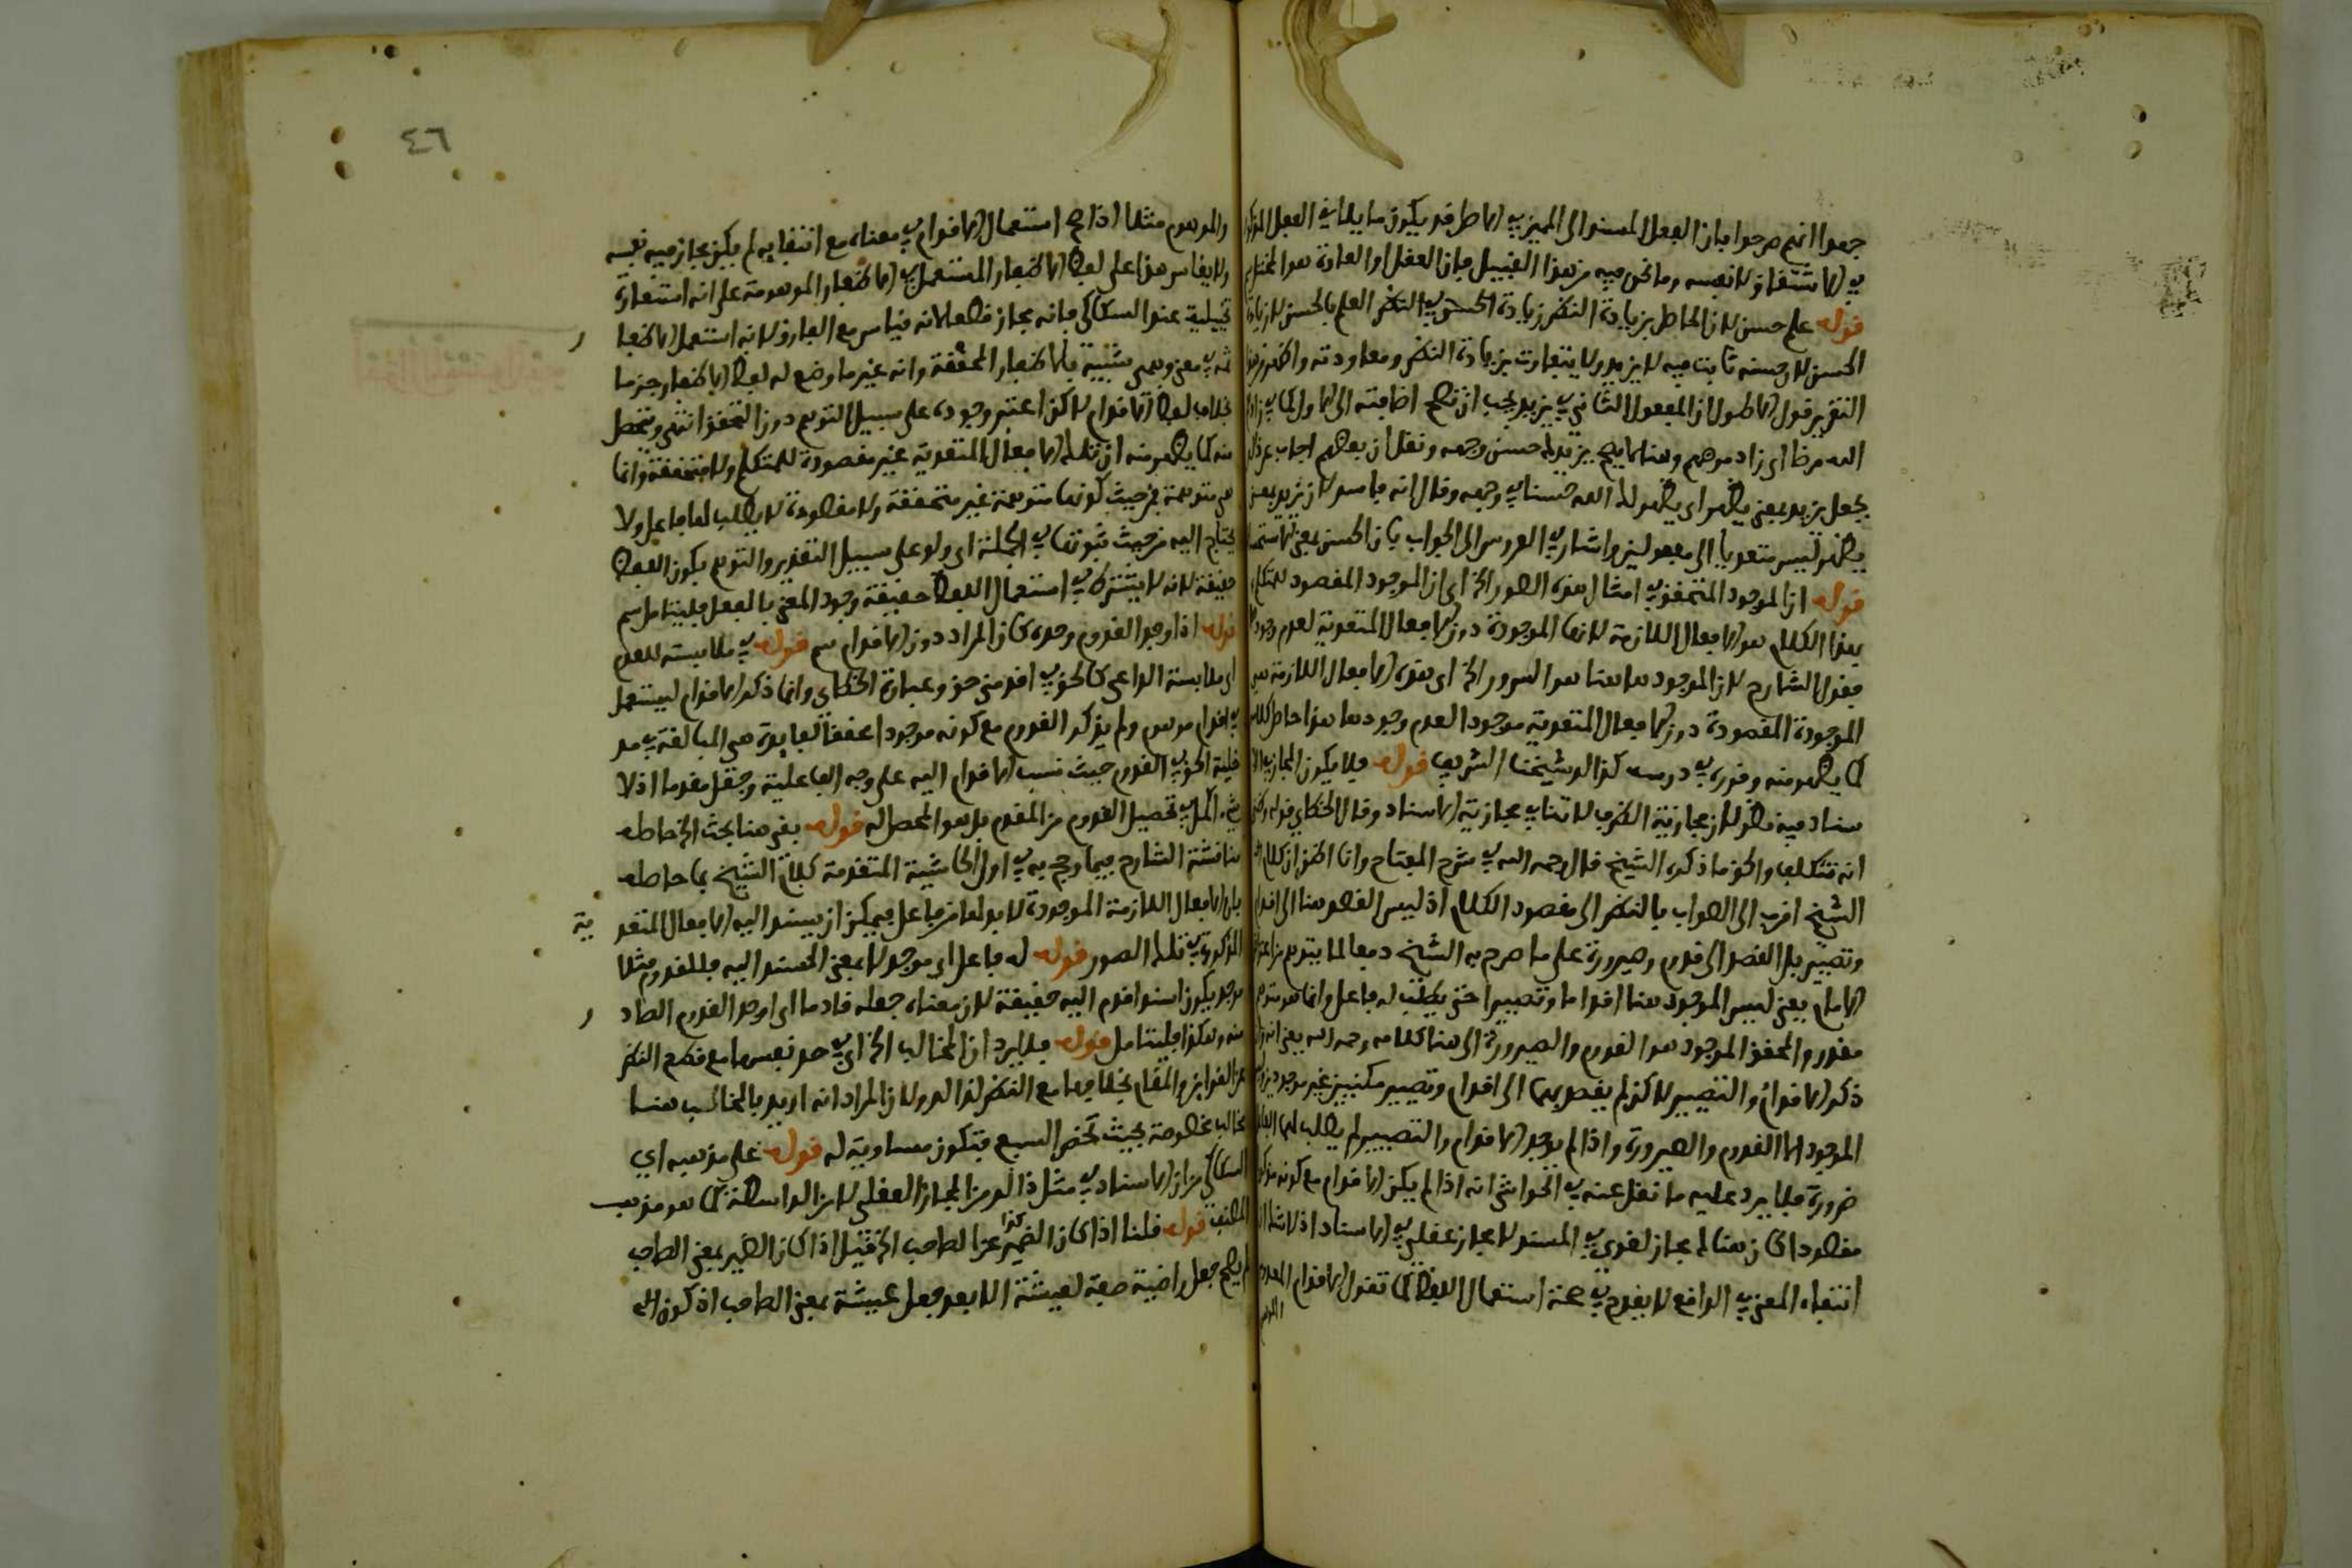 جعوا انهم صرحوا بان الفعل المسند الى المميز في الاصل قد يكون ما يلاقي الفعل المذكور
في الاشتقاق لا نفسه وما نحن فيه من هذا القبيل فان العقل او العادة هو
قوله علم حسن لان الحاصل بزيادة النظر زيادة الحسن في النظر العلم بالحسن لا زيادة
الحسن لان حسنه ثابت فيه لا يزيد ولا يتفاوت بزيادة النظر ومعاودته
التقرير قول الاطول ان المفعول الثاني في يزيد يجب ان تصح اضافته الى الاول كما في زادهم
الله مرضا اي زاد مرضهم وهنا لا يصح يزيد حسن وجهه ونقل ان بعضهم اجاب عن ذلك
بجعل يزيد بمعنى يظهر اي يظهر لك الله حسنا في وجهه وقال انه فاسد لان يزيد بمعنى
يظهر ليس متعديا الى مفعولين واشار في العروس الى الجواب بان الحسن بمعنى
قوله ان الموجود المتحقق في امثال هذه الصور الخ اي ان الموجود المقصود للمتكلم
بهذا الكلام هو الافعال اللازمة لانها الموجودة دون الافعال المتعدية لعدم وجودها
فقول الشارح لان الموجود هاهنا هو السرور الخ اي هذه الافعال اللازمة هي
الموجودة المقصودة دون الافعال المتعدية موجود العدم وجودها هذا حاصل كلامه
كما يظهر منه وقرره في درسه كذا لو شيخنا الشريف قوله فلا يكون المجاز في الا
سناد فيه نظر لان مجازية الظرف لا تنافي مجازية الاسناد وقال الحفناوي قوله
انه تتكلف والحق ما ذكره الشيخ قال رحمه الله في شرح المفتاح وانا اظن ان كلام
الشيخ اقرب الى الصواب بالنظر الى مقصود الكلام اذ ليس القصد هنا الى اقدام
وتصيير بل القصد الى قدوم وصيرورة على ما صرح به الشيخ دفعا لما يتوهم من
الامام يعني ليس الموجود هنا اقداما وتصييرا حتى يطلب له فاعل وانما هو متوهم
مقدر والمحقق الموجود هو القدوم والصيرورة الى هنا كلامه رحمه الله يعني
ذكر الاقدام والتصيير لا كن لم يقصد بهما الى اقدام وتصيير ممكنين غير موجودين
الموجود انما القدوم والصيرورة واذا لم يوجد الاقدام والتصيير لم يطلب لهما الفاعل
ضرورة فلا يرد عليه ما نقل عنه في الحواشي انه اذا لم يكن الاقدام مع كونه مذكورا
مقصودا كان هنا مجاز لغوي في المسند لا مجاز عقلي في الاسناد
انتفاء المعنى في الواقع لا يقدح في صحة استعمال اللفظ كما تقول الاقدام المعدوم
٤٦
والموهوم مثلا اذا صح استعمال الاقدام في معناه مع انتفايه لم يكن مجاز فيه نفسه
ولا يقاس هذا على لفظ الاظفار المستعمل في الاظفار الموهومة على انه استعارة
تخييلية عند السكاكي فانه مجاز قطعا لانه قياس مع الفارق لانه استعمل الاظفا
ر
ثمه في معنى وهمي شبيه بالاظفار المحققة وانه غير ما وضع له لفظ الاظفار جزما
بخلاف لفظ الاقدام لا كن اعتبر وجوده على سبيل التوهم دون التحقق انتهى ويتحصل
منه كما يظهر منه ان تلك الافعال المتعدية غير مقصودة للمتكلم ولا متحققة وانما
هي متوهمة فمن حيث كونها متوهمة غير متحققة ولا مقصودة لا يطلب لها فاعل ولا
يحتاج اليه من حيث ثبوتها في الجملة اي ولو على سبيل التقدير والتوهم يكون اللفظ
حقيقة لانه لا يشترط في استعمال اللفظ حقيقة وجود المعنى بالفعل فليتامل سم
قوله اذا وجد القدوم وحده كان المراد دون الاقدام سم قوله في ملابسته للقدوم
اي ملابسة الداعي كالحق في اقدمني حق وعبارة الحفناوي وانما ذكر الاقدام ليستعمل
في اقدام موهوم ولم يذكر القدوم مع كونه موجودا محققا لفايدة هي المبالغة في مد
خلية الحق في القدوم حيث نسب الاقدام اليه على وجه الفاعلية وجعل مقدما اذ لا
شيء اكمل في تحصيل القدوم من المقدم بل هو المحصل له قوله بقي هنا بحث الخ حاصله
مناقشة الشارح فيما رجح به في اول الحاشية المتقدمة كلام الشيخ بما حاصله
بان الافعال اللازمة الموجودة لا بد لها من فاعل فيمكن ان يسند اليه الافعال المتعد
ية
المذكورة في تلك الصور قوله له فاعل اي موجد لا بمعنى المسند اليه فللقدوم مثلا
موجد يكون اسناد اقدم اليه حقيقة لان معناه جعله قادما اي اوجد القدوم الصاد
ر
منه وهكذا فليتامل قوله فلا يرد ان المخالب الخ اي في حد نفسها مع قطع النظر
عن القراين والمقام بخلافها مع النظر لذلك ولان المراد انه اريد بالمخالب هنا
مخالب مخصوصة بحيث تخص السبع فتكون مساوية له قوله على مذهبه اي
السكاكي من ان الاسناد في مثل ذلك من المجاز العقلي لا من الواسطة كما هو مذهب
المصنف قوله قلنا اذا كان الضمير كذا عن الصاحب الخ قيل اذا كان الضمير بمعنى الصاحب
لم يصح جعل راضية صفة لعيشة الا بعد جعل عيشة بمعنى الصاحب اذ كون الخ